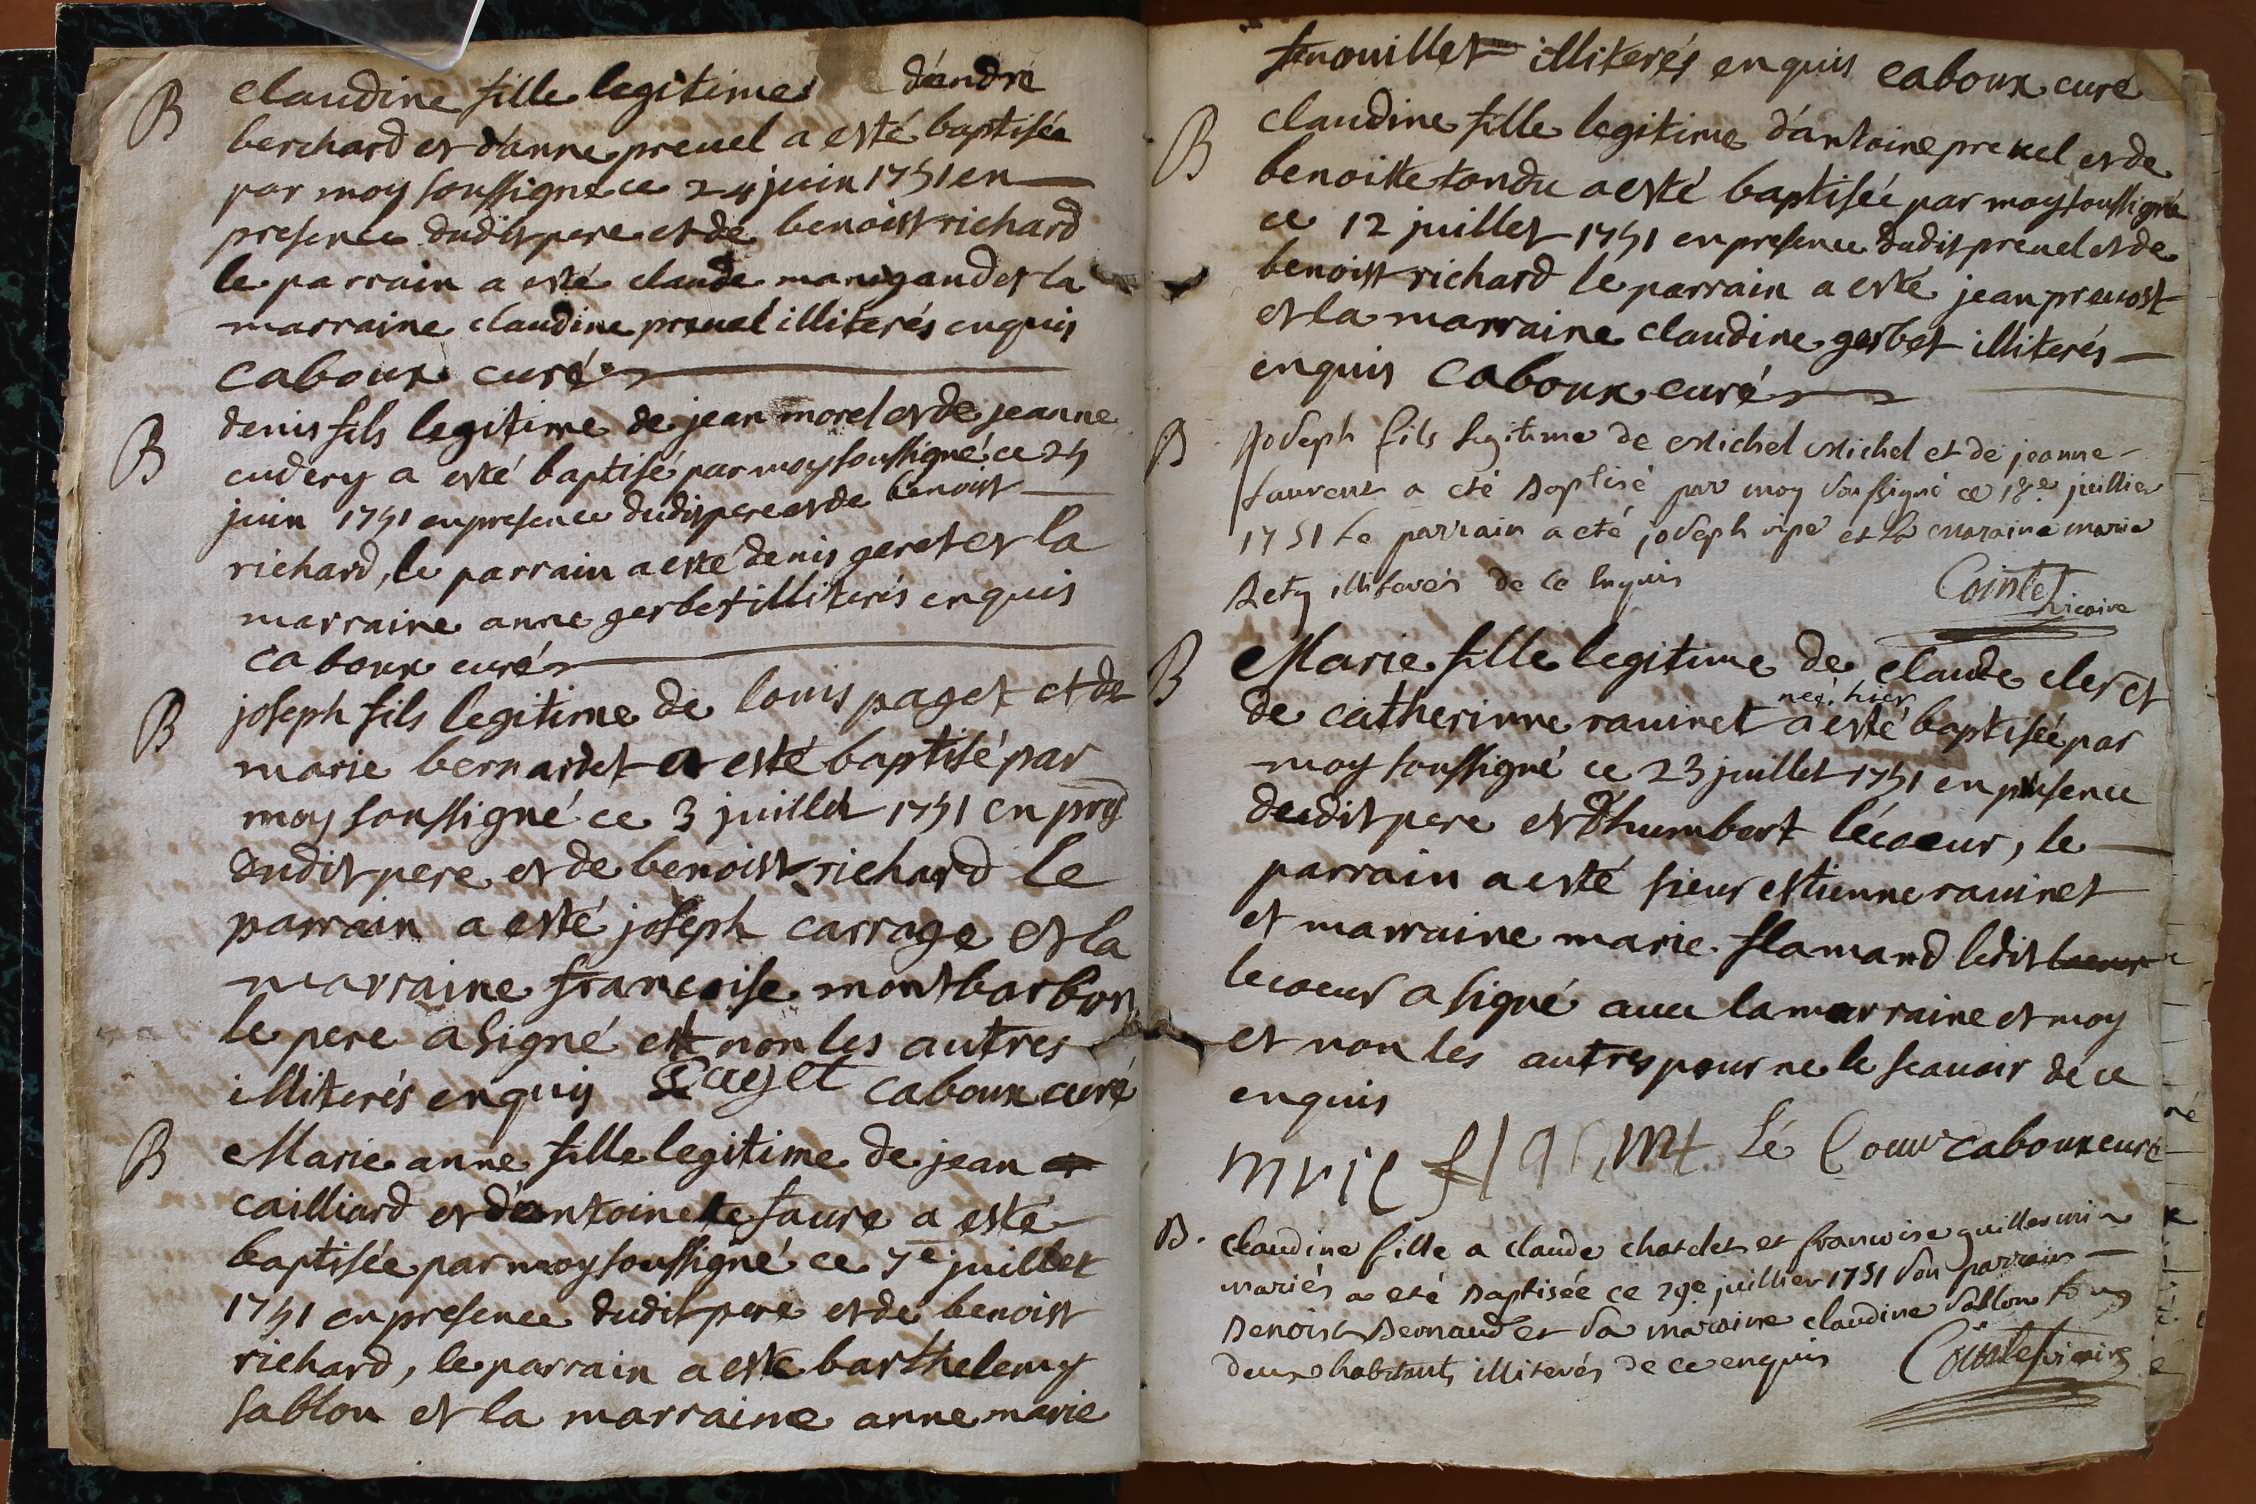 B claudine fille legitime d'andré
berchard et d'anne preuel a esté baptisée
par moy soussigné ce 24 juin 1751 en
presence dudit pere et de benoist richard
le parrain a esté claude marigaud et la
marraine claudine preuel illiterés enquis
caboux curé
B denis fils legitime de jean morel et de jeanne
cudery a esté baptisé par moy soussigné ce 25
juin 1751 en presence dudit pere et de benoist
richard, le parrain a esté denis geret et la
marraine anne gerbet illiterés enquis
caboux curé
B joseph fils legitime de louis paget et de
marie bernardet a esté baptisé par
moy soussigné ce 3 juillet 1751 en
dudit pere et de benoist richard le
parrain a esté joseph carrage et la
marraine francoise montbarbon
le pere a signé et non les autres
illiterés enquis Paget caboux curé
B Marie anne fille legitime de jean
cailliard et d'antoinete faure a esté
baptisée par moy soussigné ce 7e juillet
1751 en presence dudit pere et de benoist
richard, le parrain a esté barthelemy
sablon et la marraine anne marie
fenouillet illiterés enquis caboux curé
B claudine fille legitime d'antoine preuel et de
benoitte tondu a esté baptisée par moy soussigné
ce 12 juillet 1751 en presence dudit preuel et de
benoist richard le parrain a esté jean preuost
et la marraine claudine gerbet illiterés
enquis caboux curé
B joseph fils legitime de Michel Michel et de jeanne
Laurent a eté baptisé par moy soussigné ce 18e juillier
1751 le parrain a eté joseph ripe et la maraine marie
Bety illiterés de ce Enquis Cointet vicaire
B Marie fille legitime de claude clerct
neé hier
de catherinne rauinet a esté baptisée par
moy soussigné ce 23 juillet 1751 en presence
dudit pere et d'humbert lécoeur, le
parrain a esté sieur estienne rauinet
et marraine marie flamand ledit
lecoeur a signé auec la marraine et moy
et non les autres pour ne le scauoir de ce
enquis
Lé Coeur caboux curé
B. claudine fille a claude chatelet et francoise guillermin
mariés a eté baptisée ce 29e juillier 1751 son parrain
benoist bernaud et sa maraine claudine sablon tous
deux habitants illiterés de ce enquis Cointet vicaire